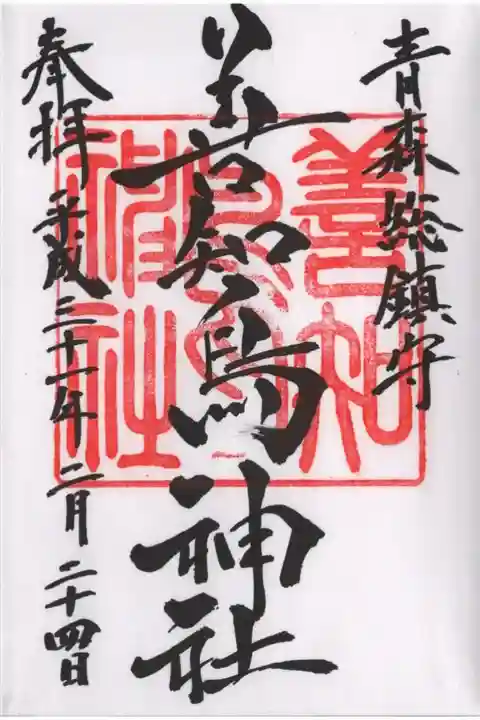 青森総鎮守
善知鳥神社
奉拝 平成三十一年 二月 二十四日
善知
鳥神社